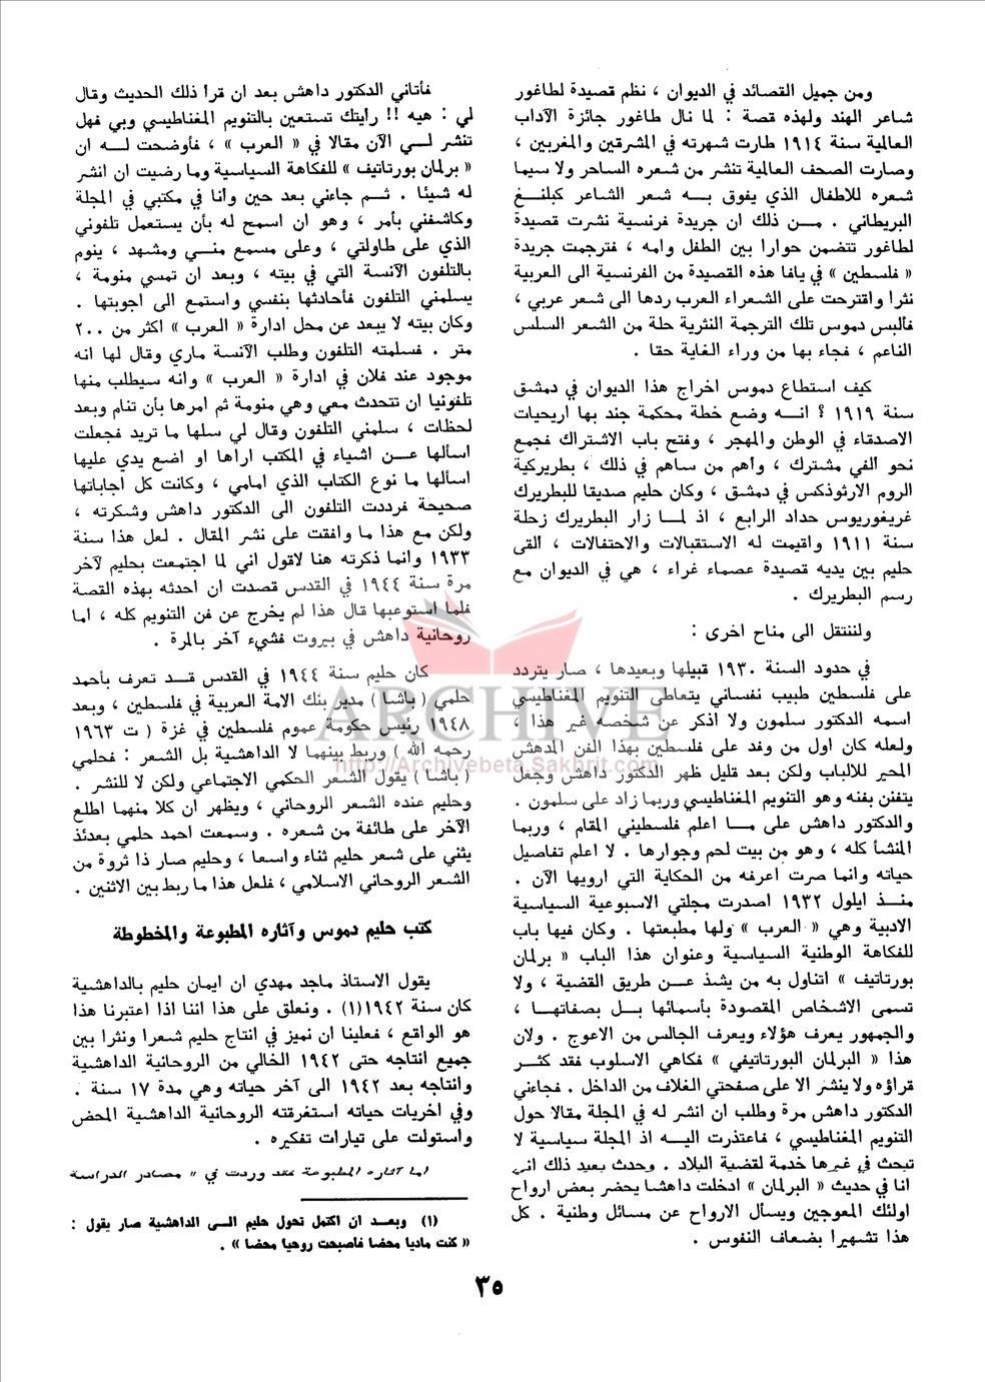 ومن جميل القصائد في الديوان ، نظم قصيدة لطاغور
شاعر الهند ولهذه قصة : لما نال طاغور جائزة الآداب
العالمية سنة ١٩١٤ طارت شهرته في المشرقين والمغربين ،
وصارت الصحف العالمية تنشر من شعره الساحر ولا سيما
شعره للاطفال الذي يفوق بــه شعر الشاعر كبلنــغ
البريطاني . مــن ذلك ان جريدة فرنسية نشرت قصيدة
لطاغور تتضمن حوارا بين الطفل وامه ، فترجمت جريدة
« فلسطين » في يافا هذه القصيدة من الفرنسية الى العربية
نثرا واقترحت على الشعراء العرب ردها الى شعر عربي ،
فألبس دموس تلك الترجمة النثرية حلة من الشعر السلس
الناعم ، فجاء بها من وراء الغاية حقا .
كيف استطاع دموس اخراج هذا الديوان في دمشق
سنة ١٩١٩ ؟ انــه وضع خطة محكمة جند بها اريحيات
الاصدقاء في الوطن والمهجر ، وفتح باب الاشتراك فجمع
نحو الفي مشترك ، واهم من ساهم في ذلك ، بطريركية
الروم الارثوذكس في دمشق ، وكان حليم صديقا للبطريرك
غريغوريوس حداد الرابع ، اذ لمــا زار البطريرك زحلة
سنة ١٩١١ واقيمت له الاستقبالات والاحتفالات ، القى
حليم بين يديه قصيدة عصماء غراء ، هي في الديوان مع
رسم البطريرك .
ولننتقل الى مناح اخرى :
في حدود السنة ١٩٣٠ قبيلها وبعيدها ، صار يتردد
على فلسطين طبيب نفساني يتعاطى التنويم المغناطيسي
اسمه الدكتور سلمون ولا اذكر عن شخصه غير هذا ،
ولعله كان اول من وفد على فلسطين بهذا الفن المدهش
المحير للالباب ولكن بعد قليل ظهر الدكتور داهش وجعل
يتفنن بفنه وهو التنويم المغناطيسي وربما زاد على سلمون .
والدكتور داهش على مــا اعلم فلسطيني المقام ، وربما
المنشأ كله ، وهو من بيت لحم وجوارها . لا اعلم تفاصيل
حياته وانما صرت اعرفه من الحكاية التي ارويها الآن .
منــذ ايلول ١٩٣٢ اصدرت مجلتي الاسبوعية السياسية
الادبية وهي « العرب » ولها مطبعتها . وكان فيها باب
للفكاهة الوطنية السياسية وعنوان هذا الباب « برلمان
بورتاتيف » اتناول به من يشذ عــن طريق القضية ، ولا
تسمى الاشخاص المقصودة بأسمائها بــل بصفاتهــا ،
والجمهور يعرف هؤلاء ويعرف الجالس من الاعوج . ولان
هذا « البرلمان البورتاتيفي » فكاهي الاسلوب فقد كثــر
قراؤه ولا ينشر الا على صفحتي الغلاف من الداخل . فجاءني
الدكتور داهش مرة وطلب ان انشر له في المجلة مقالا حول
التنويم المغناطيسي ، فاعتذرت اليــه اذ المجلة سياسية لا
تبحث في غيرها خدمة لقضية البلاد . وحدث بعيد ذلك اني
انا في حديث « البرلمان » ادخلت داهشا يحضر بعض ارواح
اولئك المعوجين ويسأل الارواح عن مسائل وطنية . كل
هذا تشهيرا بضعاف النفوس .
فأتاني الدكتور داهش بعد ان قرأ ذلك الحديث وقال
لي : هيه !! رأيتك تستعين بالتنويم المغناطيسي وبي فهل
تنشر لــي الآن مقالا في « العرب » ، فأوضحت لــه ان
« برلمان بورتاتيف » للفكاهة السياسية وما رضيت ان انشر
له شيئا . ثــم جاءني بعد حين وأنا في مكتبي في المجلة
وكاشفني بأمر ، وهو ان اسمح له بأن يستعمل تلفوني
الذي على طاولتي ، وعلى مسمع منــي ومشهد ، ينوم
بالتلفون الآنسة التي في بيته ، وبعد ان تمسي منومة ،
يسلمني التلفون فأحادثها بنفسي واستمع الى اجوبتها .
وكان بيته لا يبعد عن محل ادارة « العرب » اكثر من ٢٠٠
متر . فسلمته التلفون وطلب الآنسة ماري وقال لها انه
موجود عند فلان في ادارة « العرب » وانه سيطلب منها
تلفونيا ان تتحدث معي وهي منومة ثم امرها بأن تنام وبعد
لحظات ، سلمني التلفون وقال لي سلها ما تريد فجعلت
اسألها عــن اشياء في المكتب اراها او اضع يدي عليها
اسألها ما نوع الكتاب الذي امامي ، وكانت كل اجاباتها
صحيحة فرددت التلفون الى الدكتور داهش وشكرته ،
ولكن مع هذا ما وافقت على نشر المقال . لعل هذا سنة
١٩٣٣ وانما ذكرته هنا لاقول اني لما اجتمعت بحليم لآخر
مرة سنة ١٩٤٤ في القدس قصدت ان احدثه بهذه القصة
فلما استوعبها قال هذا لم يخرج عن فن التنويم كله ، اما
روحانية داهش في بيروت فشيء آخر بالمرة .
كان حليم سنة ١٩٤٤ في القدس قــد تعرف بأحمد
حلمي ( باشا ) مدير بنك الامة العربية في فلسطين ، وبعد
١٩٤٨ رئيس حكومة عموم فلسطين في غزة ( ت ١٩٦٣
رحمه الله ) وربط بينهما لا الداهشية بل الشعر : فحلمي
( باشا ) يقول الشعر الحكمي الاجتماعي ولكن لا للنشر .
وحليم عنده الشعر الروحاني ، ويظهر ان كلا منهما اطلع
الآخر على طائفة من شعره . وسمعت احمد حلمي بعدئذ
يثني على شعر حليم ثناء واسعا ، وحليم صار ذا ثروة من
الشعر الروحاني الاسلامي ، فلعل هذا ما ربط بين الاثنين .
كتب حليم دموس وآثاره المطبوعة والمخطوطة
يقول الاستاذ ماجد مهدي ان ايمان حليم بالداهشية
كان سنة ١٩٤٢(١) . ونعلق على هذا اننا اذا اعتبرنا هذا
هو الواقع ، فعلينا ان نميز في انتاج حليم شعرا ونثرا بين
جميع انتاجه حتى ١٩٤٢ الخالي من الروحانية الداهشية
وانتاجه بعد ١٩٤٢ الى آخر حياته وهي مدة ١٧ سنة .
وفي اخريات حياته استغرقته الروحانية الداهشية المحض
واستولت على تيارات تفكيره .
اما آثاره المطبوعة فقد وردت في « مصادر الدراسة
(١) وبعــد ان اكتمل تحول حليم الــى الداهشية صار يقول :
« كنت ماديا محضا فأصبحت روحيا محضا » .
٣٥
ARCHIVE
http://Archivebeta.Sakhrit.com